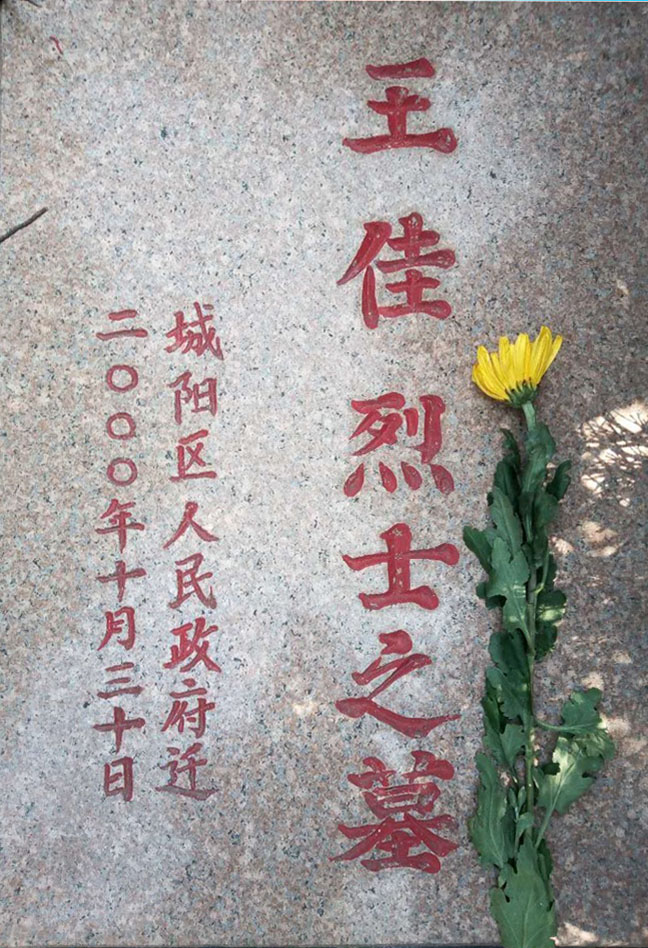 王佳烈士之墓
城阳区人民政府迁
二〇〇〇年十月三十日